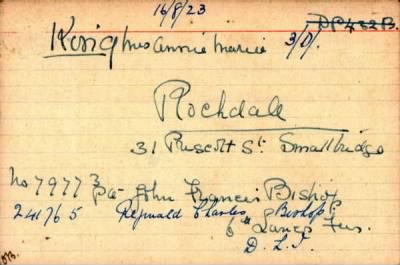 16/8/23
DP 432B.
King Mrs Annie Maria 3/D/.
Rochdale
31 Ruscott St. Smallbridge
No 79773 Pte John Francis Bishop
241765 Reginald Charles Bishop
6th Lancs Fus.
D. L. I.